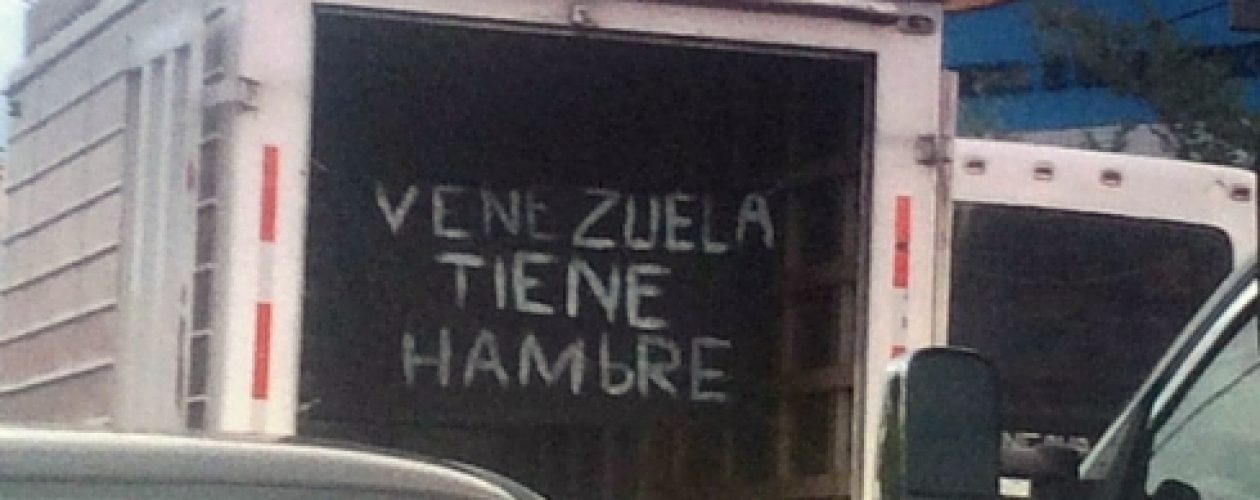 VENEZUELA
TIENE
HAMbRE